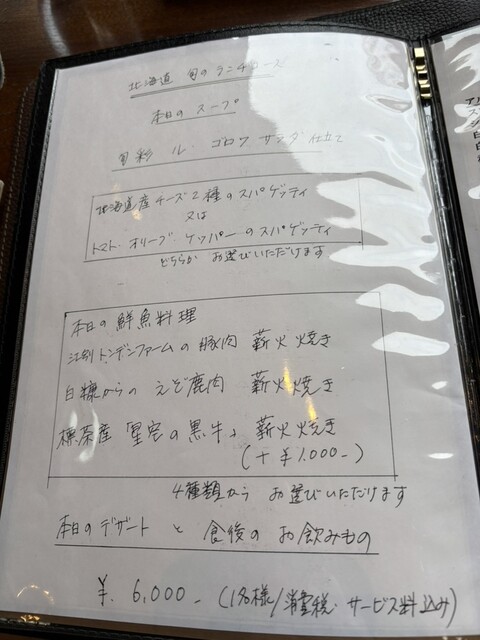 北海道 旬のランチコース
本日のスープ
旬彩 ル・ゴロワ サラダ仕立て
北海道産チーズ2種のスパゲッティ
又は
トマト・オリーブ・ケッパーのスパゲッティ
どちらか お選びいただけます
本日の鮮魚料理
江別トンデンファームの豚肉 薪火焼き
白糠からの えぞ鹿肉 薪火焼き
標茶産 「星空の黒牛」 薪火焼き
(+¥1,000-)
4種類から お選びいただけます
本日のデザート と 食後の お飲みもの
¥. 6,000- (1名様/消費税・サービス料込み)